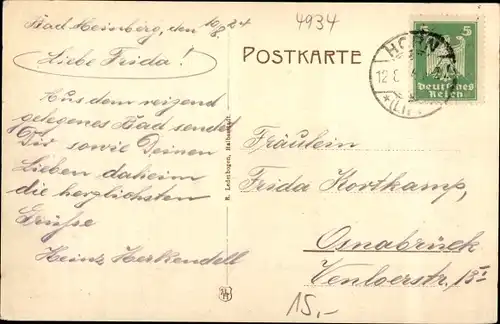 Bad Meinberg, den 10/8 24
Liebe Frida!
Aus dem reizend
gelegenes Bad sendet
Dir sowie Deinen
Lieben daheim
die herzlichsten
Grüsse
Heinz Herkendell
R. Lederbogen, Halberstadt.
4934
POSTKARTE
HORN
12 8
(LI
5 5
Deutsches
Reich
Fräulein
Frida Kortkamp,
Osnabrück
Venloerstr. 13 I
15,-